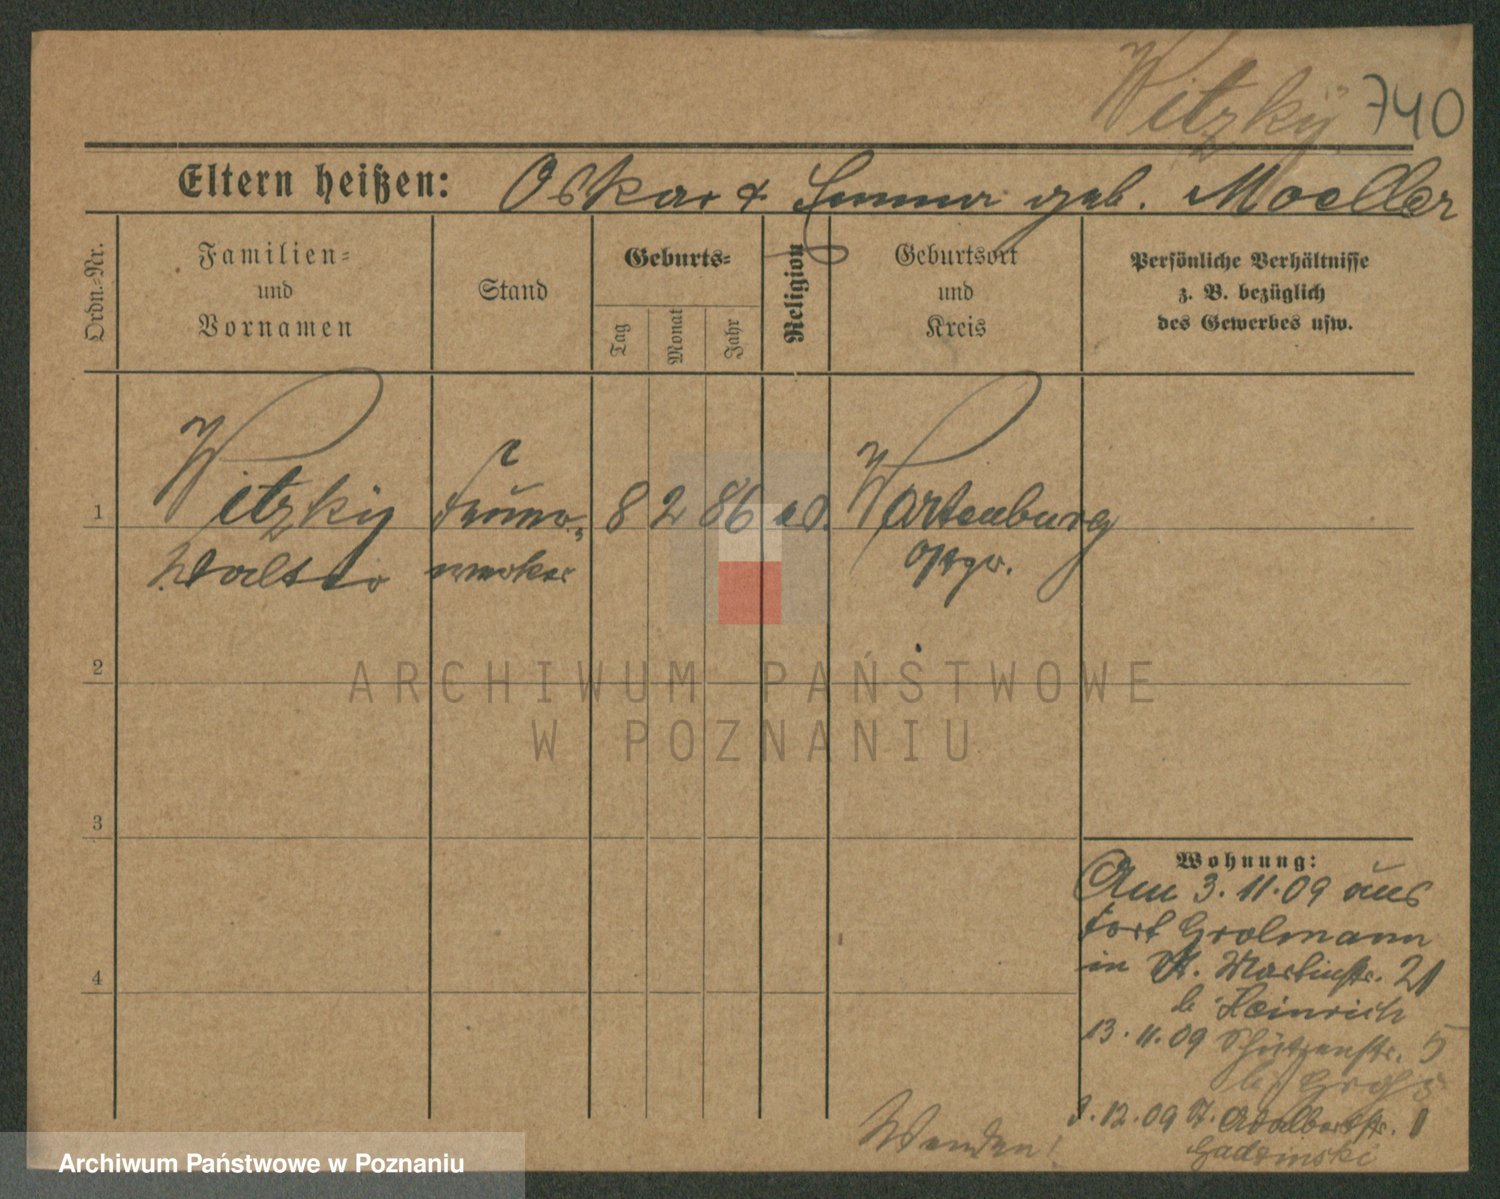 Witzky 740
Eltern heißen: Oskar & Emma geb. Moeller
Ordn.-Nr.
Familien-
und
Vornamen
Stand
Geburts-
Tag
Monat
Jahr
Religion
Geburtsort
und
Kreis
Persönliche Verhältnisse
z. B. bezüglich
des Gewerbes usw.
1 Witzky 8 2 86 ev. Wartenburg
Walter Ostpr.
2
3
4
ARCHIWUM PAŃSTWOWE
W POZNANIU
Wohnung:
Am 3. 11. 09 aus
Fort Grolmann
in St. Martinstr. 21
b Heinrich
13. 11. 09 Schützenstr. 5
b/
12. 09 St. Adalbertstr. 1
Wenden!
Archiwum Państwowe w Poznaniu